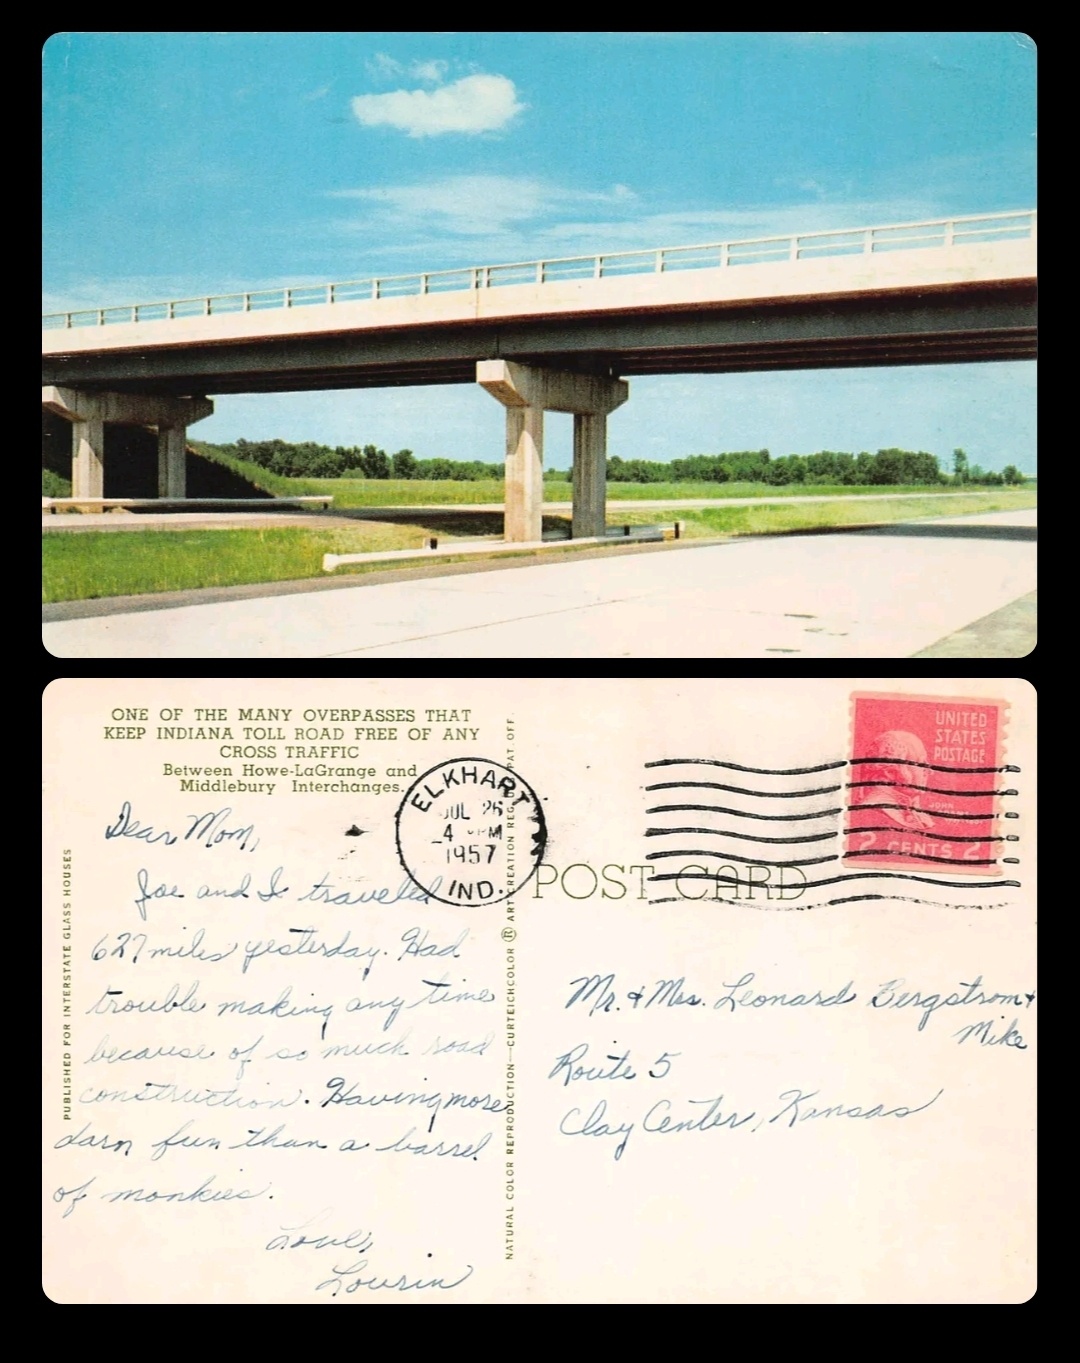 ONE OF THE MANY OVERPASSES THAT
KEEP INDIANA TOLL ROAD FREE OF ANY
CROSS TRAFFIC
Between Howe-LaGrange and
Middlebury Interchanges.
Dear Mom,
Joe and I traveled
627 miles yesterday. Had
trouble making any time
because of so much road
construction. Having more
darn fun than a barrel
of monkies.
Love,
Lourin
PUBLISHED FOR INTERSTATE GLASS HOUSES
NATURAL COLOR REPRODUCTION—CURTEICHCOLOR ® ART CREATION REG. PAT. OFF.
ELKHART
JUL 26
4 PM
1957
IND.
UNITED
STATES
POSTAGE
JOHN
2 CENTS 2
POST CARD
Mr. & Mrs. Leonard Bergstrom &
Mike
Route 5
Clay Center, Kansas